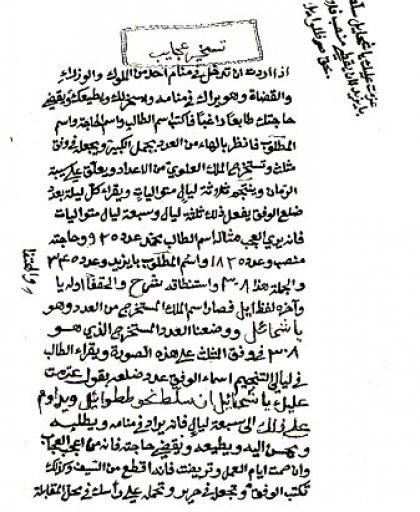 تسخير عجايب
اذا اردت ان تدخل في منام احد من الملوك والوزراء
والقضاة وهو يراك في منامه واستخر لك ويطيعك ويقضي
حاجتك طايعا راغبا فاكتب اسم الطالب واسم الحاجة واسم
المطلوب فانظر بالهاء من العدد بجمل الكبير ويجعله في وفق
مثلث وتستخرج الملك العلوي من الاعداد ويعلق على
الرمان وينجم ثلاثة ليالي متواليات ويقراء كل ليلة بعد
ضلع الوفق يفعل ذلك ثلثة ليالي وسبعة ليال متواليات
فانه يرى العجب مثاله اسم الطالب محمد عدد ٩٢٥ وحاجته
منصب وعدد ١٨٢٥ واسم المطلوب بايزيد وعدد ٣٤٥
والجملة هذا ٣٠٨ واستنطاقه شرح والحقنا اوله يا
وآخره لفظ ايل فصار اسم الملك المستخرج من العدد وهو
يا شحائيل ووضعنا العدد المستخرج الذي هو
٣٠٨ في وفق الثلث على هذه الصورة ويقراء الطالب
في ليالي التنجيم اسماء الوفق عدد ضلعه يقول عزمت
عليك يا شحائيل ان سلط ططوائيل ويداوم
على ذلك الى سبعة ليال فانه يراد في منامه ويطلبه
ويحسن اليه ويطيعه ويقضي حاجته فانه من اعجب العجاب
وان صمت ايام العمل وتريضت فانه اقطع من السيف وكذلك
تكتب الوفق وتجعله في حرير وتحمله على رأسك في محل المقابلة
عزمت عليك يا
بايزيد
بحق
والهنا